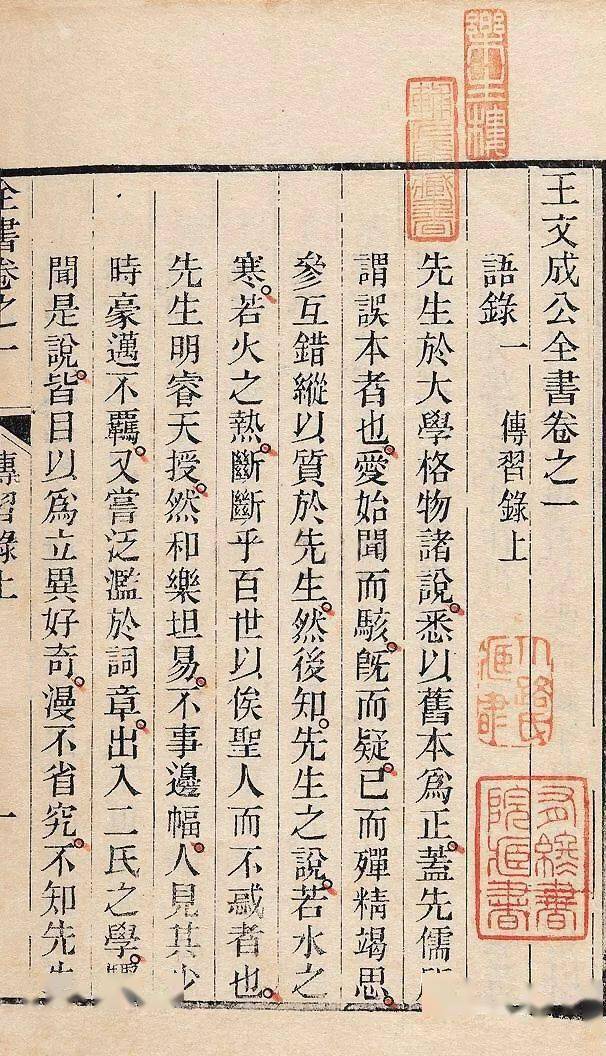 王文成公全書卷之一
語錄一 傳習錄上
先生於大學格物諸說。悉以舊本爲正。蓋先儒
謂誤本者也。愛始聞而駭。旣而疑。已而殫精竭思。
參互錯縱以質於先生。然後知。先生之說。若水之
寒。若火之熱。斷斷乎百世以俟聖人而不惑者也。
先生明睿天授。然和樂坦易。不事邊幅。人見其少
時豪邁不羈。又嘗泛濫於詞章。出入二氏之學。
聞是說。皆目以爲立異好奇。漫不省究。不知先
全書卷之一 傳習錄上 一